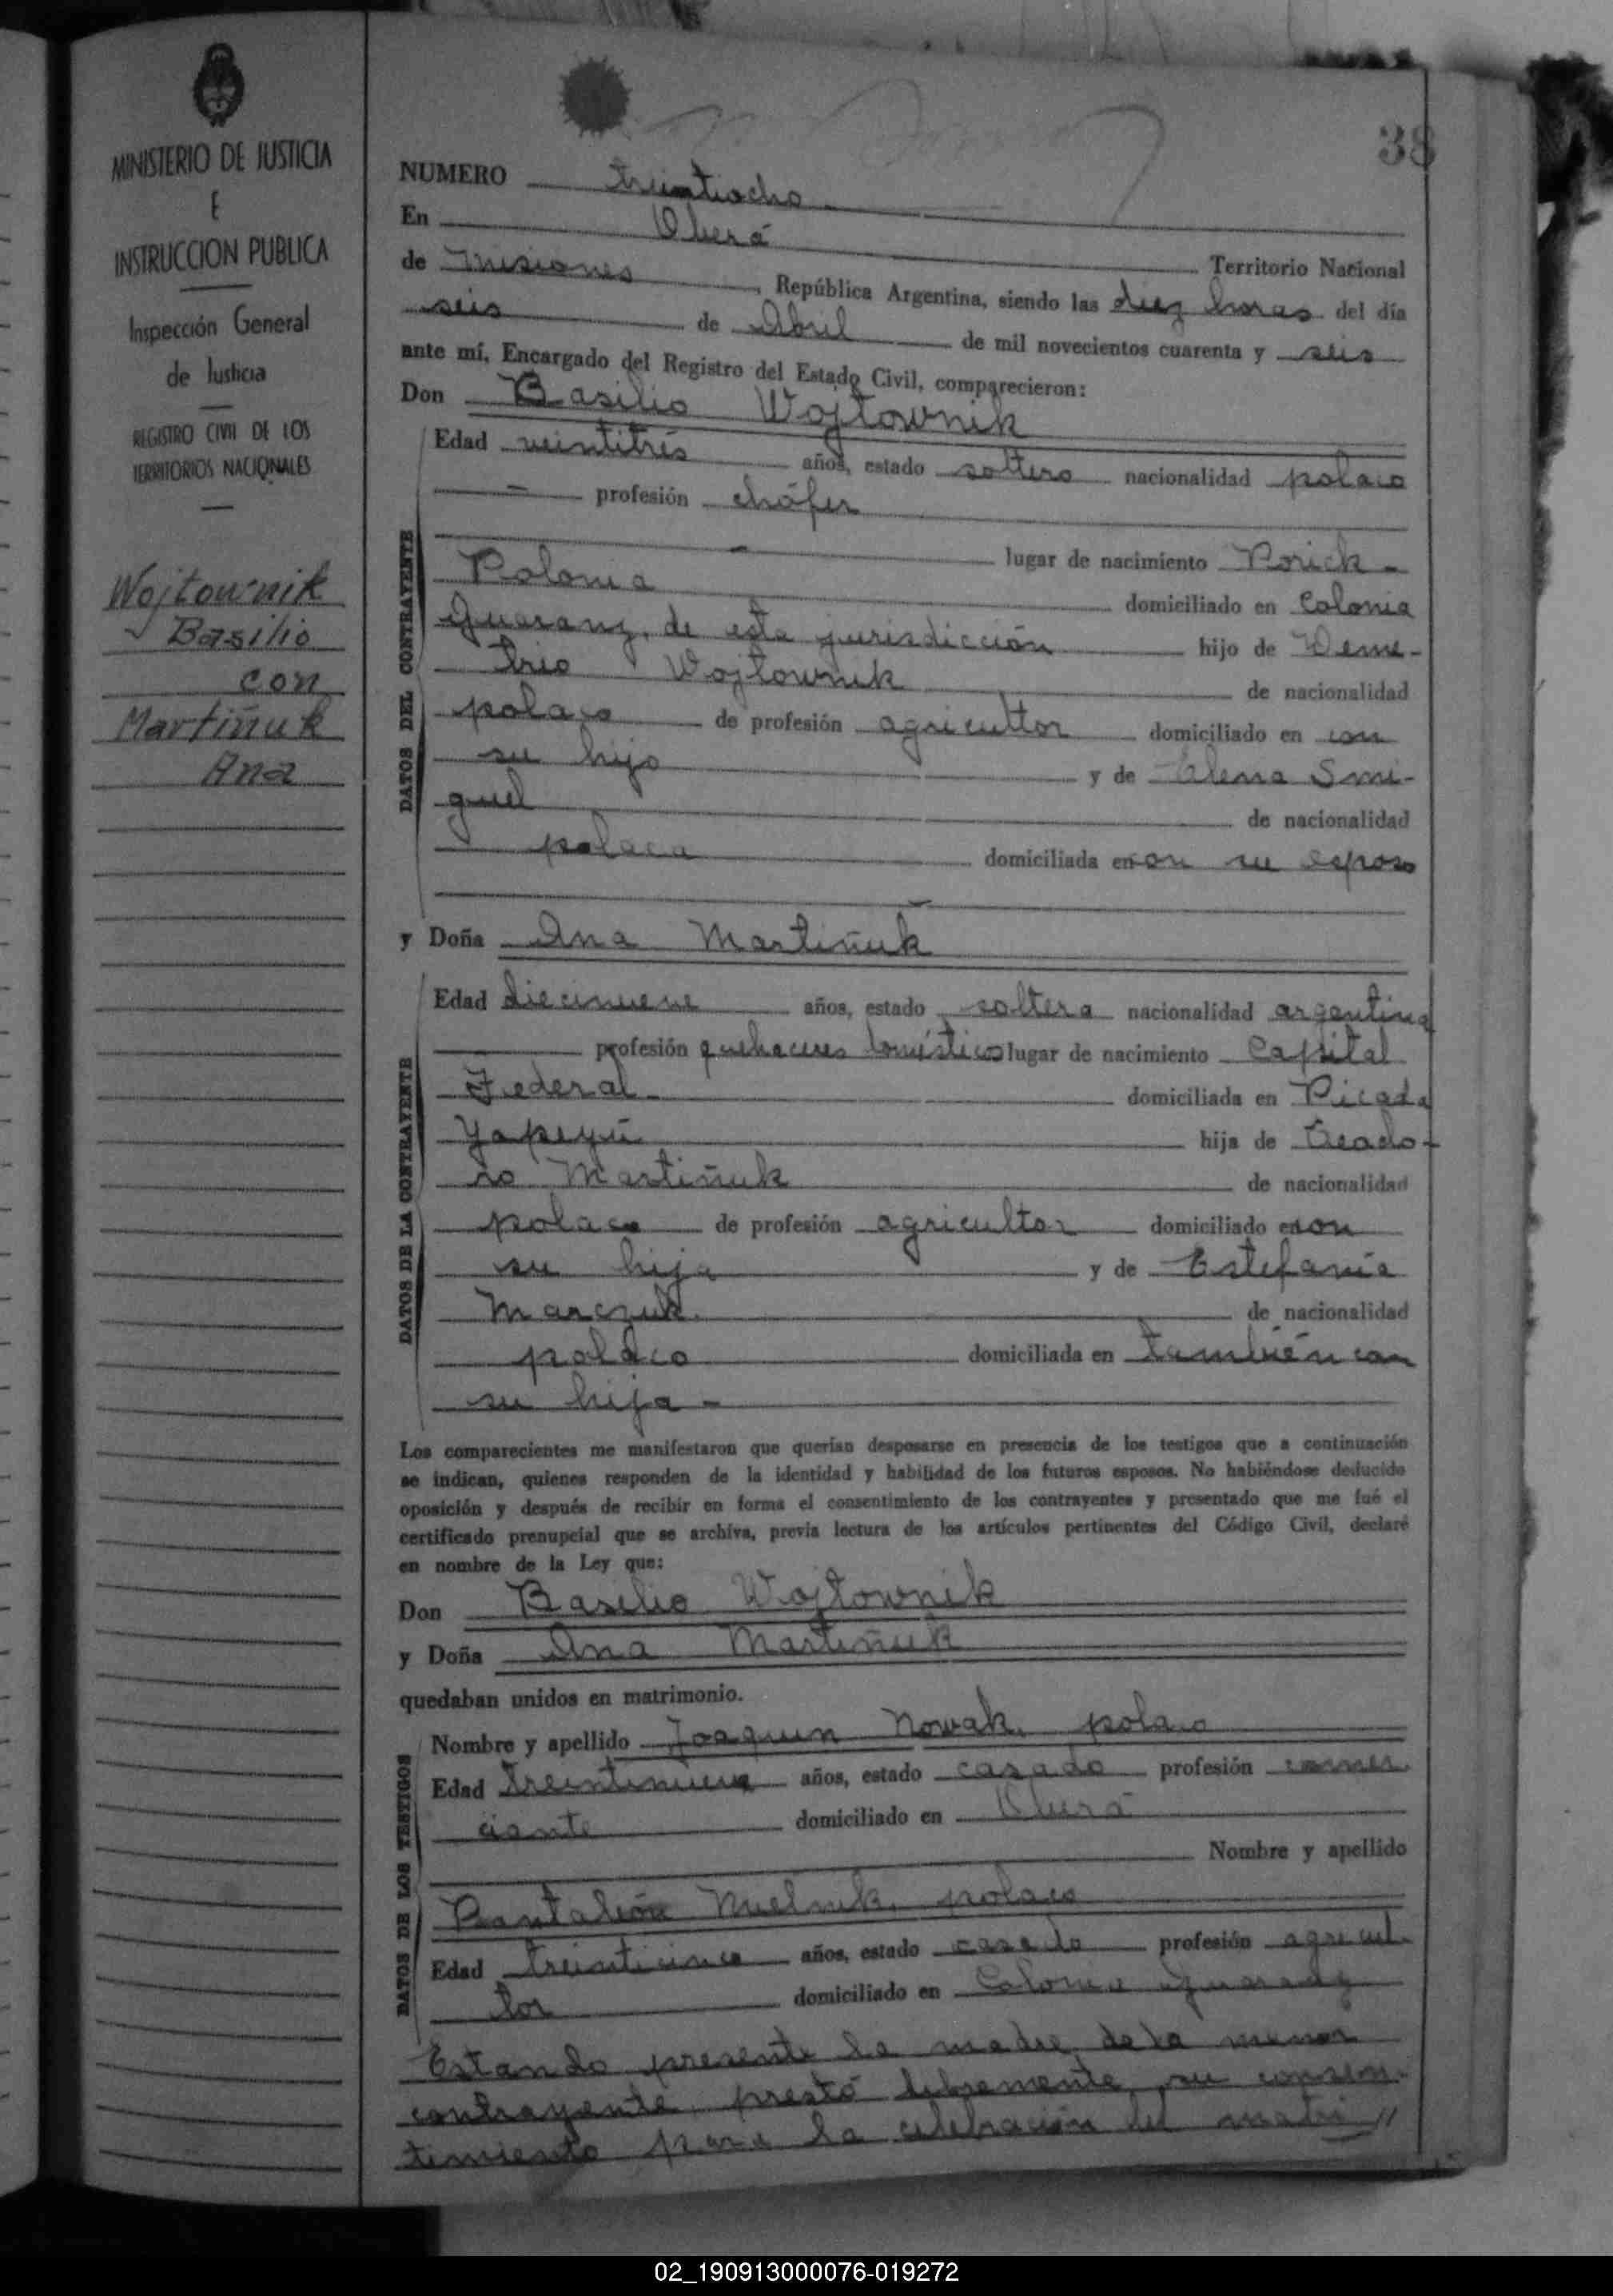 MINISTERIO DE JUSTICIA
E
INSTRUCCION PUBLICA
Inspección General
de Justicia
REGISTRO CIVIL DE LOS
TERRITORIOS NACIONALES
Wojtownik
Basilio
con
Martiñuk
Ana
38
NUMERO treintiocho
En Oberá
Territorio Nacional
de Misiones, República Argentina, siendo las diez horas del día
seis de Abril de mil novecientos cuarenta y seis
ante mí, Encargado del Registro del Estado Civil, comparecieron:
Don Basilio Wojtownik
DATOS DEL CONTRAYENTE
Edad veintitrés años, estado soltero nacionalidad polaco
profesión chófer
lugar de nacimiento Porick-
Polonia domiciliado en Colonia
Guarany, de esta jurisdicción hijo de Deme-
trio Wojtownik de nacionalidad
polaco de profesión agricultor domiciliado en con
su hijo y de Elena Smi-
guel de nacionalidad
polaca domiciliada en con su esposo
y Doña Ana Martiñuk
DATOS DE LA CONTRAYENTE
Edad diecinueve años, estado soltera nacionalidad argentina
profesión quehaceres domésticos lugar de nacimiento Capital
Federal domiciliada en Picada
Yapeyú hija de Teodo-
ro Martiñuk de nacionalidad
polaco de profesión agricultor domiciliado en con
su hija y de Estefanía
Marczuk de nacionalidad
polaco domiciliada en también con
su hija -
Los comparecientes me manifestaron que querían desposarse en presencia de los testigos que a continuación
se indican, quienes responden de la identidad y habilidad de los futuros esposos. No habiéndose deducido
oposición y después de recibir en forma el consentimiento de los contrayentes y presentado que me fué el
certificado prenupcial que se archiva, previa lectura de los artículos pertinentes del Código Civil, declaré
en nombre de la Ley que:
Don Basilio Wojtownik
y Doña Ana Martiñuk
quedaban unidos en matrimonio.
DATOS DE LOS TESTIGOS
Nombre y apellido Joaquin Nowak, polaco
Edad treintinueve años, estado casado profesión comer-
ciante domiciliado en Oberá
Nombre y apellido
Pantaleón Mielnik, polaco
Edad treinticinco años, estado casado profesión agricul-
tor domiciliado en Colonia Guarany
Estando presente la madre de la menor
contrayente, prestó libremente su consen-
timiento para la celebración del matri//
02_190913000076-019272